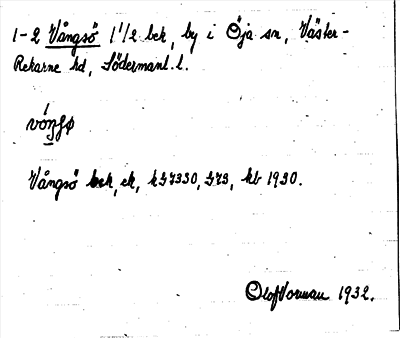 1-2 Vångsö 1 1/2 bek, by i Öja sn, Väster-
Rekarne hd, Södermanl. l.
Vångsö bek, ek, kb 1930.
Olof Vorman 1932.